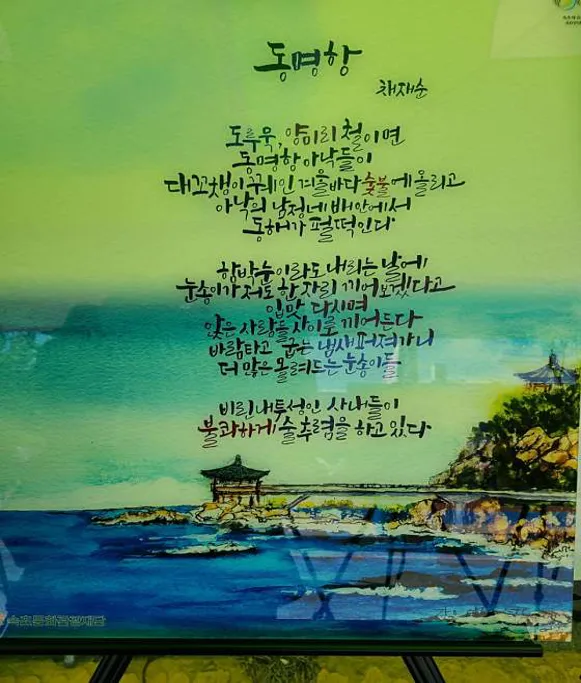 동명항
채재순
도루묵, 양미리 철이면
동명항 아낙들이
대꼬챙이 꿰인 겨울바다 숯불에 올리고
아낙의 남정네 배 안에서
동해가 펄떡인다
함박눈이라도 내리는 날에
눈송이가 저도 한 자리 끼어보겠다고
입맛 다시며
앉은 사람들 사이로 끼어든다
바람타고 굽는 냄새 퍼져가니
더 많은 몰려드는 눈송이들
비린내 투성인 사내들이
불콰하게 술추렴을 하고 있다
속초문화관광재단